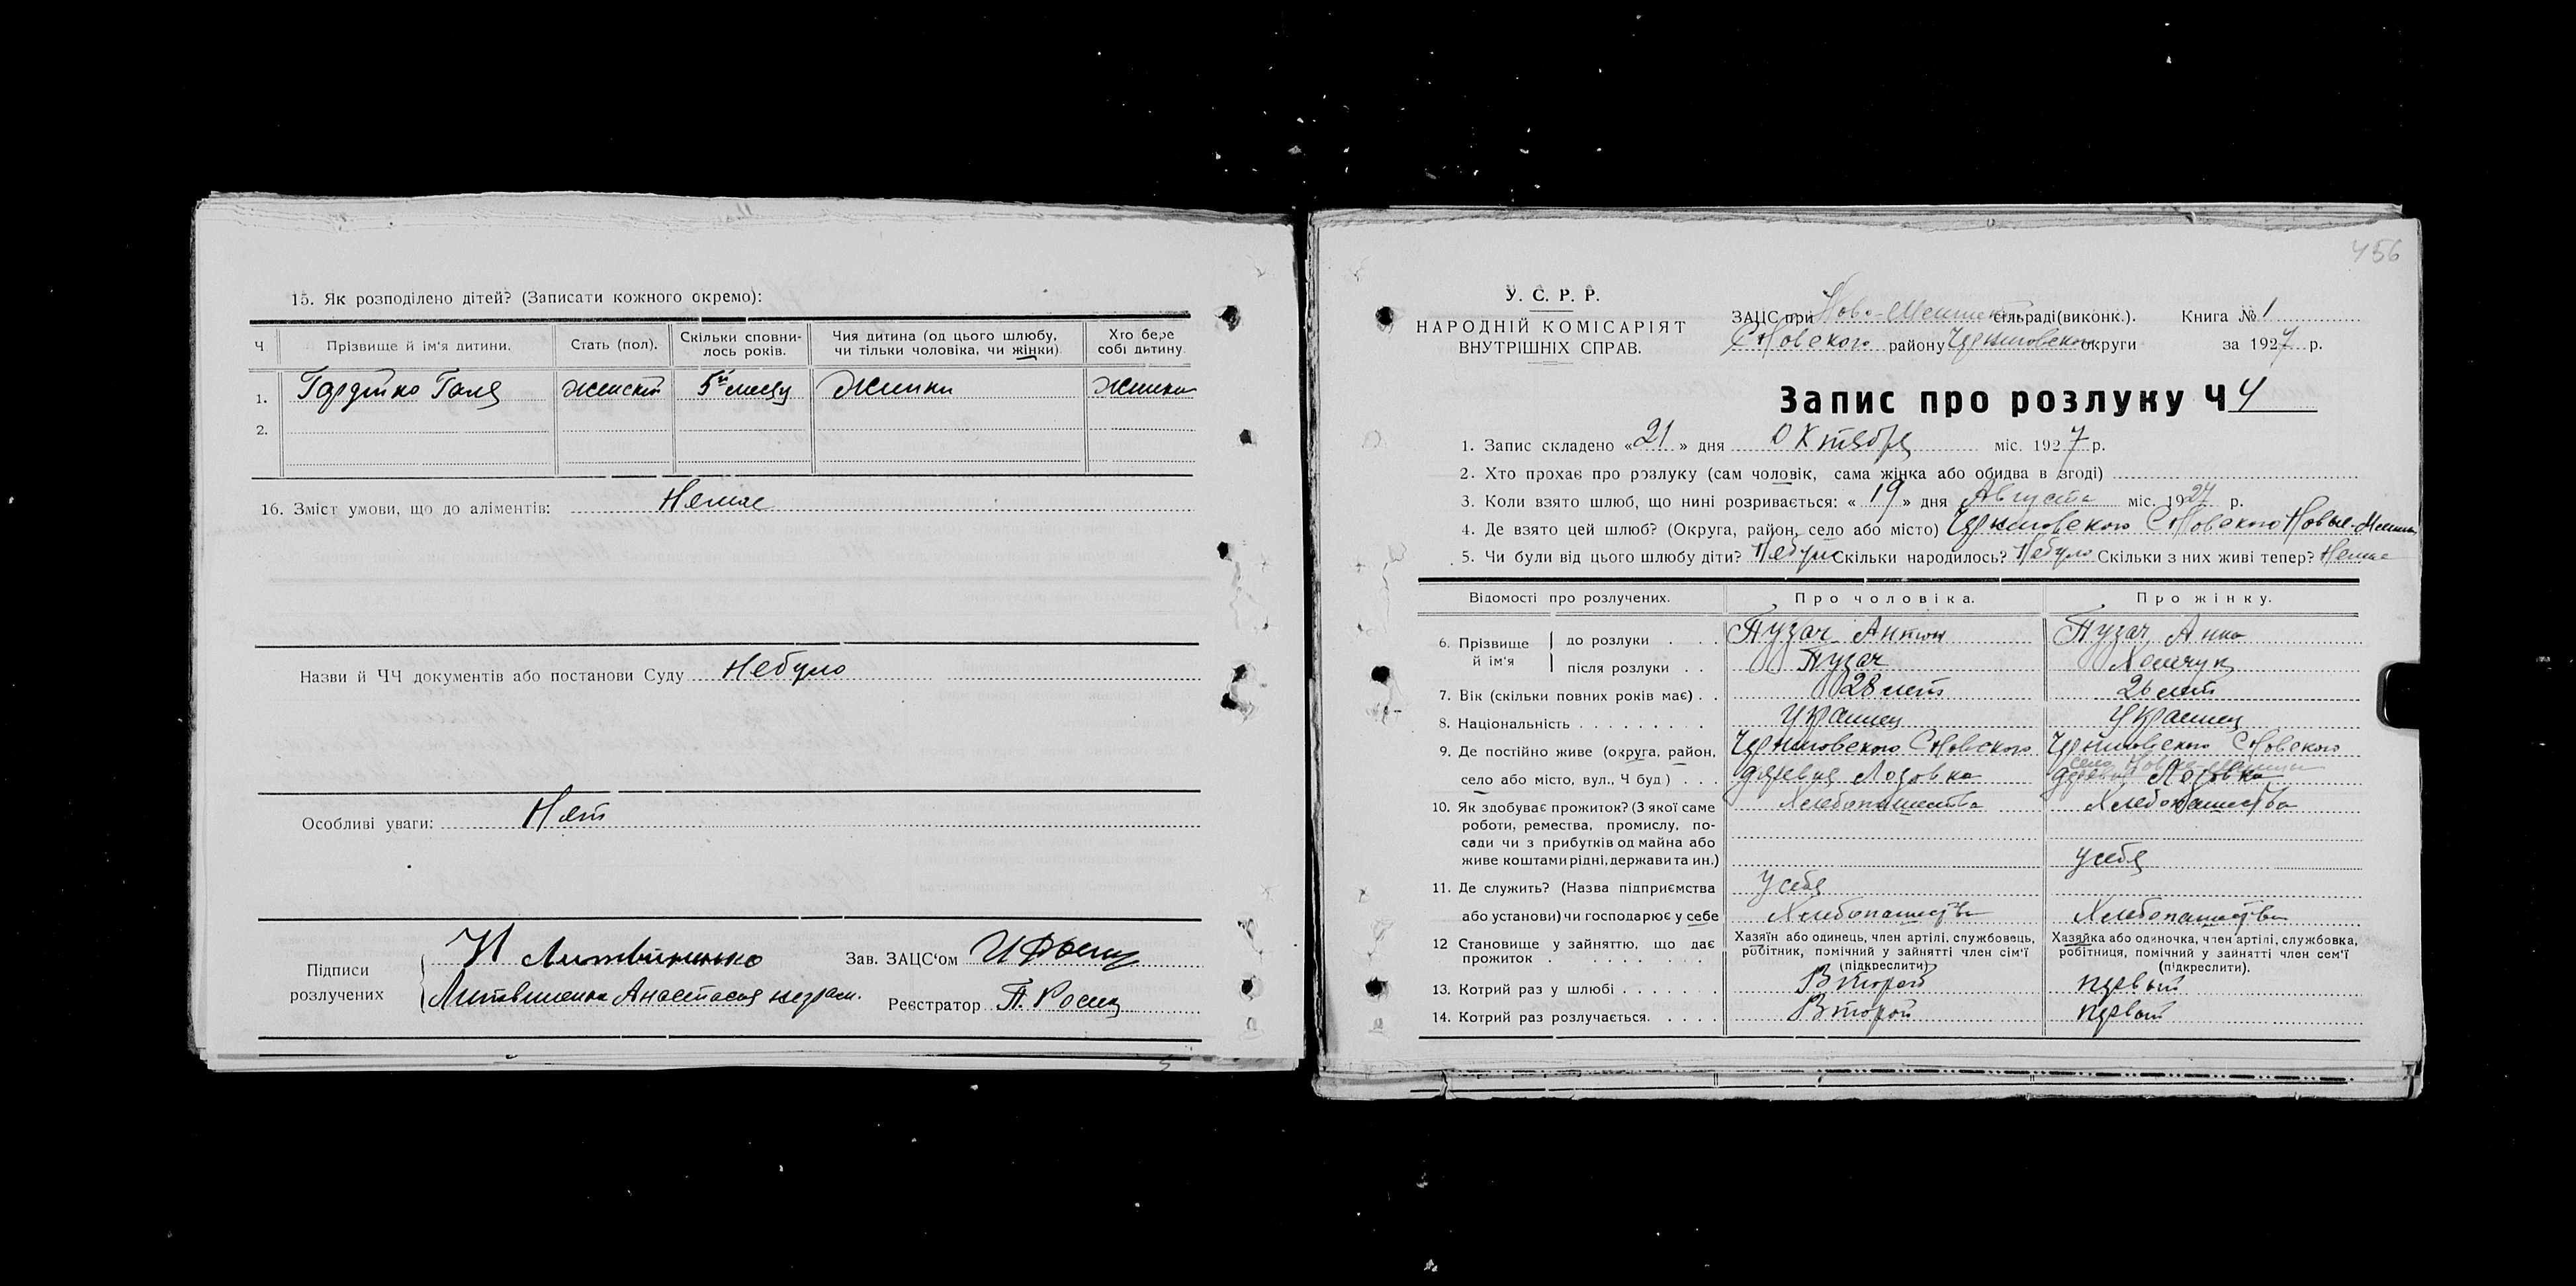 15. Як розподілено дітей? (Записати кожного окремо):
Ч Прізвище й ім'я дитини. Стать (пол). Скільки сповнилось років. Чия дитина (од цього шлюбу, чи тільки чоловіка, чи жінки) Хто бере собі дитину.
1. Гордейко Галя женской 5й месяц Жинки Жинка
2.
16. Зміст умови, що до аліментів: Немае
Назви й ЧЧ документів або постанови Суду Небуло
Особливі уваги: Нет
Підписи розлучених
И Литвиненко
Литвиненко Анастасия неграм.
Зав. ЗАЦС'ом
Реєстратор П. Росец
456
У. С. Р. Р.
НАРОДНІЙ КОМІСАРІЯТ
ВНУТРІШНІХ СПРАВ.
ЗАЦС при Ново- сільраді (виконк.). Книга № 1
Сновского району Черниговского округи за 1927 р.
Запис про розлуку Ч 4
1. Запис складено «21» дня Октября міс. 1927 р.
2. Хто прохає про розлуку (сам чоловік, сама жінка або обидва в згоді)
3. Коли взято шлюб, що нині розривається: «19» дня Августа міс. 1927 р.
4. Де взято цей шлюб? (Округа, район, село або місто) Черниговского Сновского Новые-
5. Чи були від цього шлюбу діти? Небуло Скільки народилось? Небуло Скільки з них живі тепер? Немае
Відомості про розлучених. Про чоловіка. Про жінку.
6. Прізвище й ім'я до розлуки Пузач Антон Пузач Анна
після розлуки Пузач
7. Вік (скільки повних років має) 28 лет 26 лет
8. Національність Украинец Украинец
9. Де постійно живе (округа, район, Черниговского Сновского Черниговского Сновского
село або місто, вул., Ч буд) деревня Лозовка деревня Лозовка
10. Як здобуває прожиток? (З якої саме Хлебопашество Хлебопашество
роботи, ремества, промислу, по-
сади чи з прибутків од майна або
живе коштами рідні, держави та ин.) у себя
11. Де служить? (Назва підприємства у себя
або установи) чи господарює у себе Хлебопашество Хлебопашество
12 Становище у зайняттю, що дає прожиток Хазяїн або одинець, член артілі, службовець, робітник, помічний у зайнятті член сім'ї (підкреслити) Хазяйка або одиночка, член артілі, службовка, робітниця, помічний у зайнятті член сем'ї (підкреслити).
13. Котрий раз у шлюбі Второй первый
14. Котрий раз розлучається. Второй первый